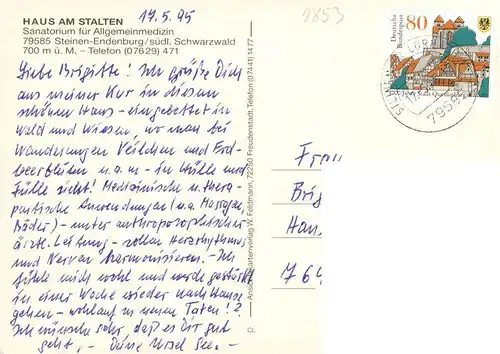 17.5.95
1853
HAUS AM STALTEN
Sanatorium für Allgemeinmedizin
79585 Steinen-Endenburg/südl. Schwarzwald
700 m ü. M. – Telefon (07629) 471
Liebe Brigitte! Ich grüße Dich
aus meiner Kur in diesem
schönen Haus – eingebettet in
Wald und Wiesen, wo man bei
Wanderungen Veilchen und Erd-
beerblüten u.a.m. – in Hülle und
Fülle sieht! Medizinische u. thera-
peutische Anwendungen (u.a. Massagen,
Bäder) – unter anthroposophischer
ärztl. Leitung – sollen Herzrhythmus
und Nerven harmonisieren. – Ich
fühle mich wohl und werde gestärkt
in einer Woche wieder nach Hause
gehen – wohlauf zu neuen Taten!?
Ich wünsche sehr, daß es Dir gut
geht, – Deine Ursel See. –
Ansichtskartenverlag W. Feldmann, 72250 Freudenstadt, Telefon (07441) 14 77
CL
Deutsche Bundespost
80
7958
Frau
Brig
Han
764